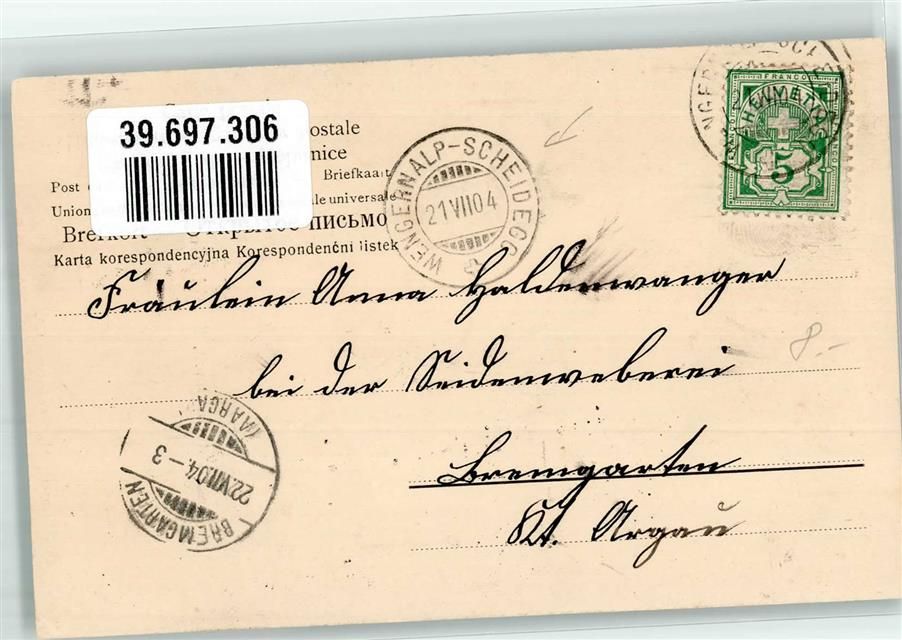 39.697.306
ostale
nice
Post
Briefkaart
Union
le universale
Brefkort Открытое письмо
Karta korespondencyjna Korespondenčni listek
WENGERNALP-SCHEIDEGG
21 VII 04
FRANCO
5
Fräulein Anna Haldenwanger
bei der Seidenweberei
Bremgarten
Kt. Argau
8.-
BREMGARTEN
22.VII.04.-3